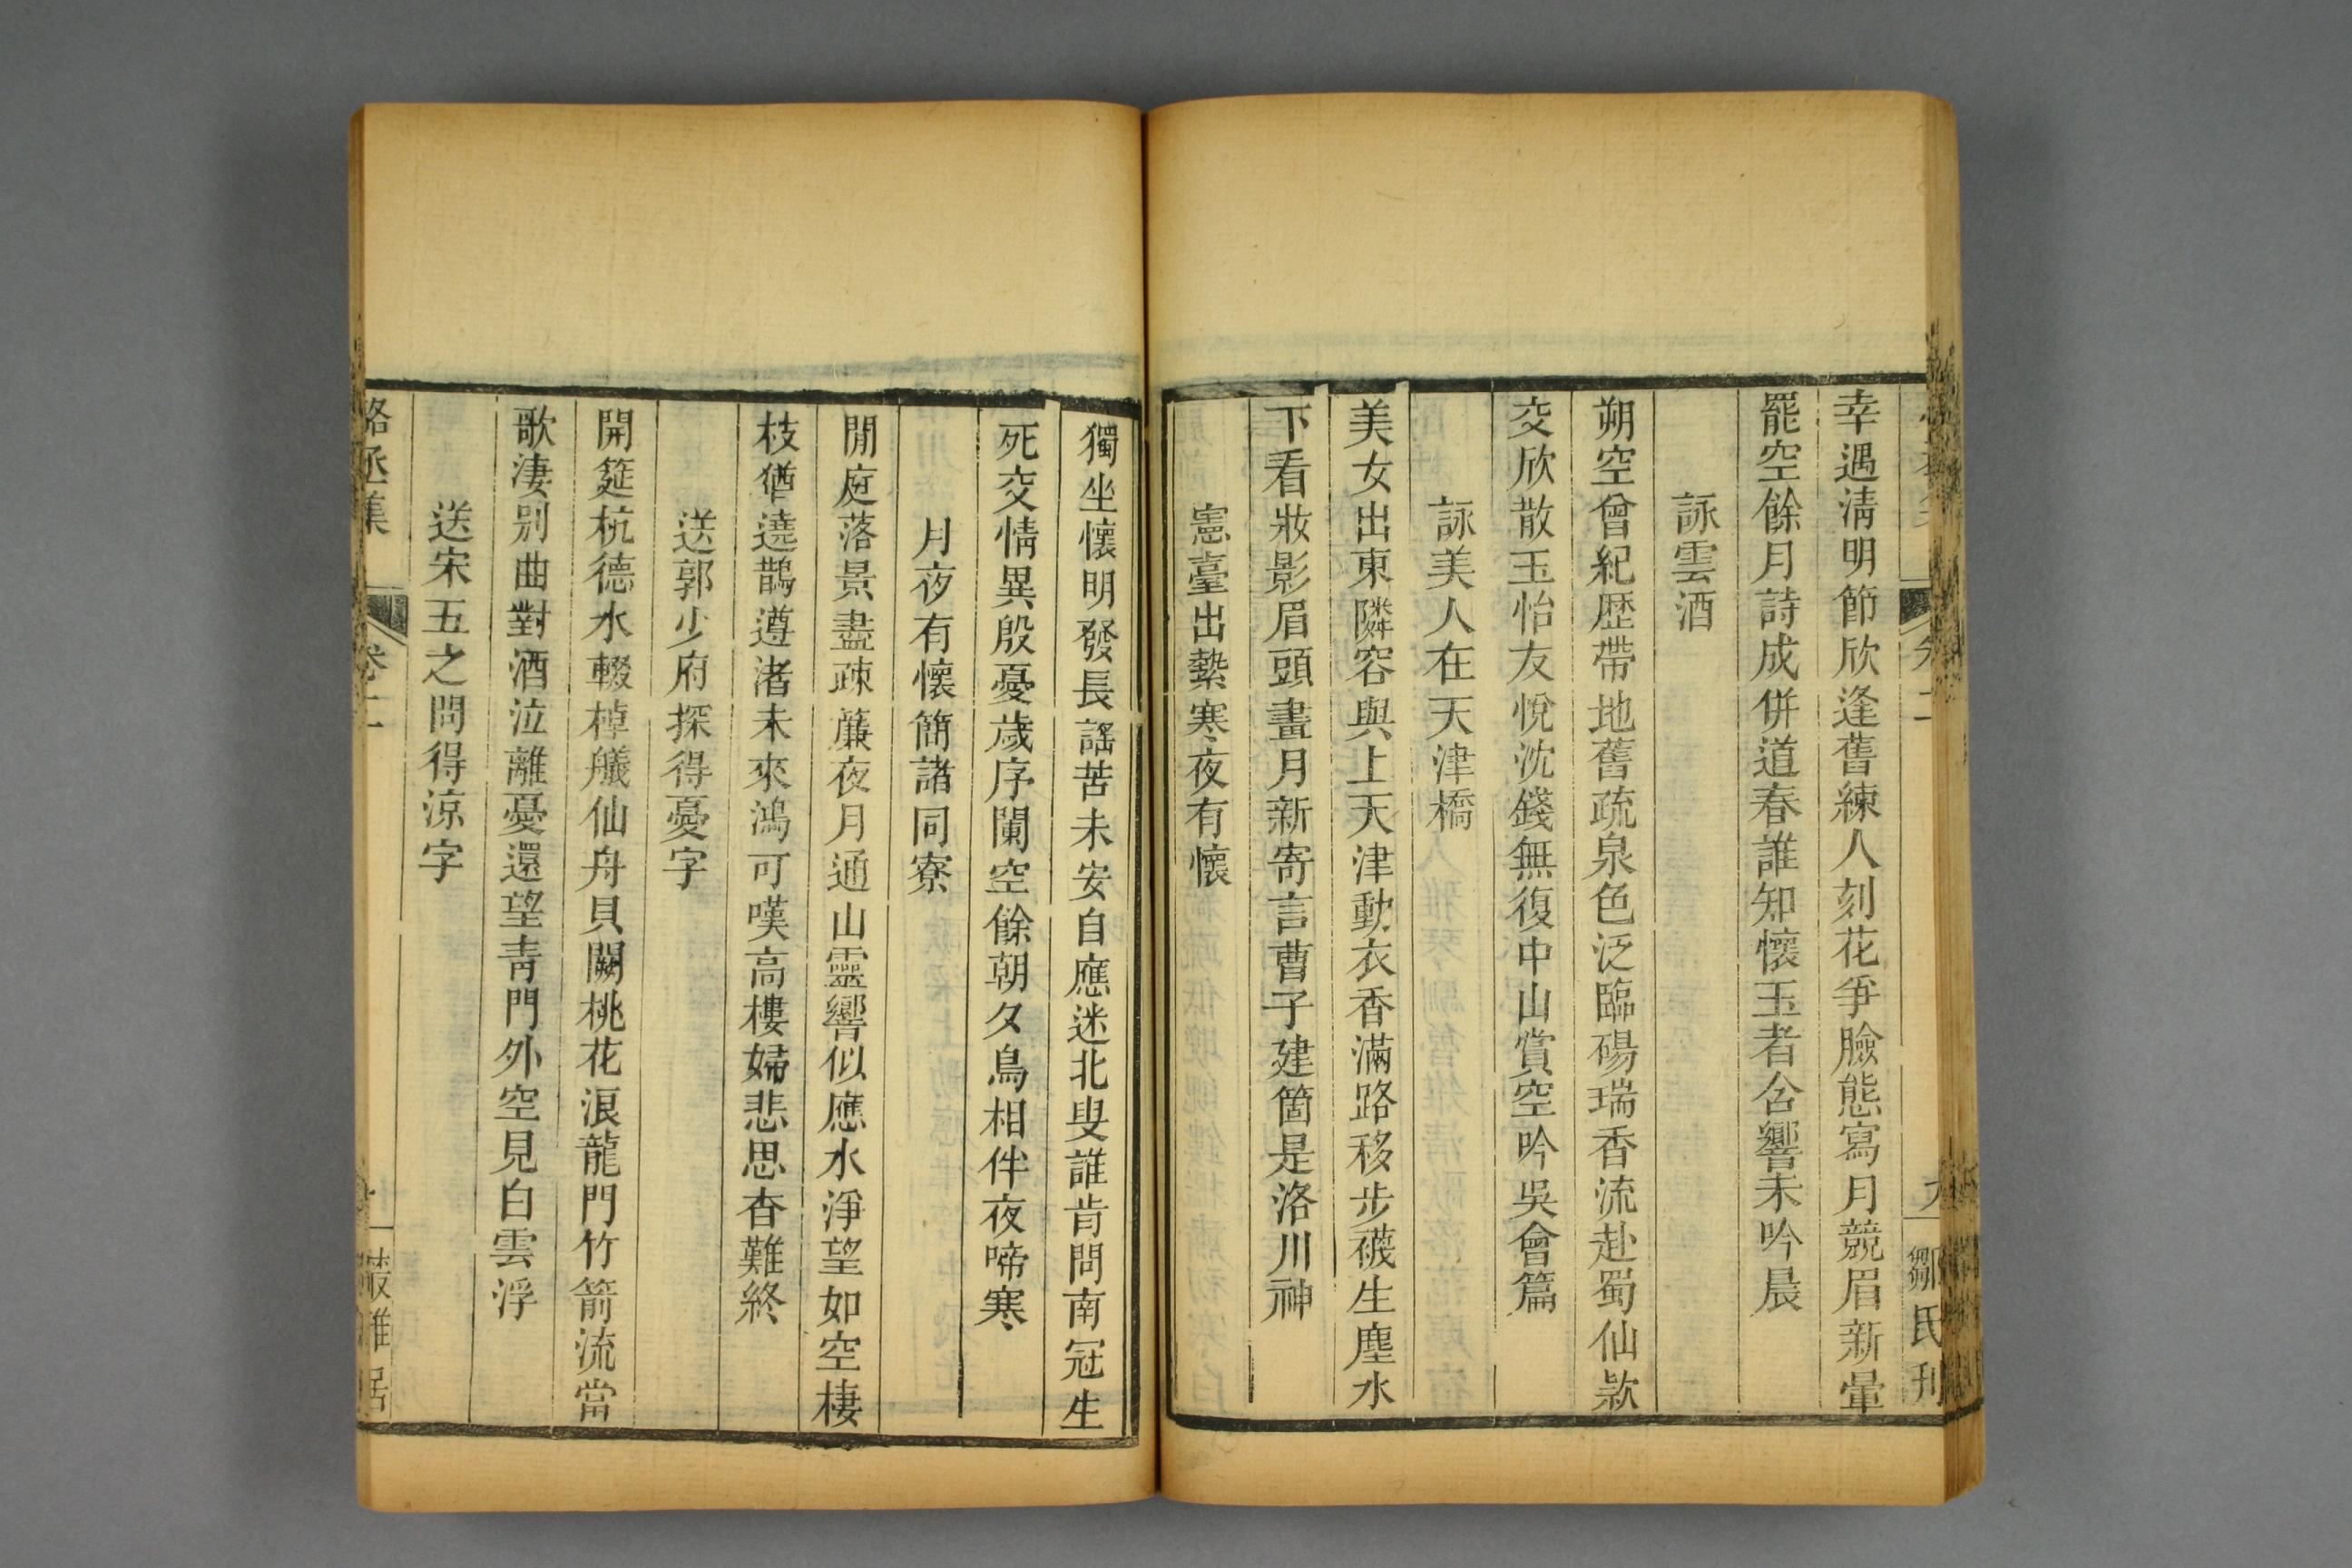 幸遇淸明節欣逢舊練人刻花爭臉態寫月競眉新暈
罷空餘月詩成併道春誰知懷玉者含響未吟晨
詠雲酒
朔空曾紀歷帶地舊疏泉色泛臨碭瑞香流赴蜀仙欵
交欣散玉怡友悅沈錢無復中山賞空吟吳會篇
詠美人在天津橋
美女出東隣容與上天津動衣香滿路移步襪生塵水
下看妝影眉頭畫月新寄言曹子建箇是洛川神
憲臺出縶寒夜有懷
獨坐懷明發長謠苦未安自應迷北叟誰肯問南冠生
死交情異殷憂歲序闌空餘朝夕鳥相伴夜啼寒
月夜有懷簡諸同寮
閒庭落景盡疎簾夜月通山靈響似應水淨望如空棲
枝猶遶鵲遵渚未來鴻可嘆高樓婦悲思杳難終
送郭少府探得憂字
開筵杭德水輟棹艤仙舟貝闕桃花浪龍門竹箭流當
歌淒別曲對酒泣離憂還望靑門外空見白雲浮
送宋五之問得涼字
駱丞集
卷二